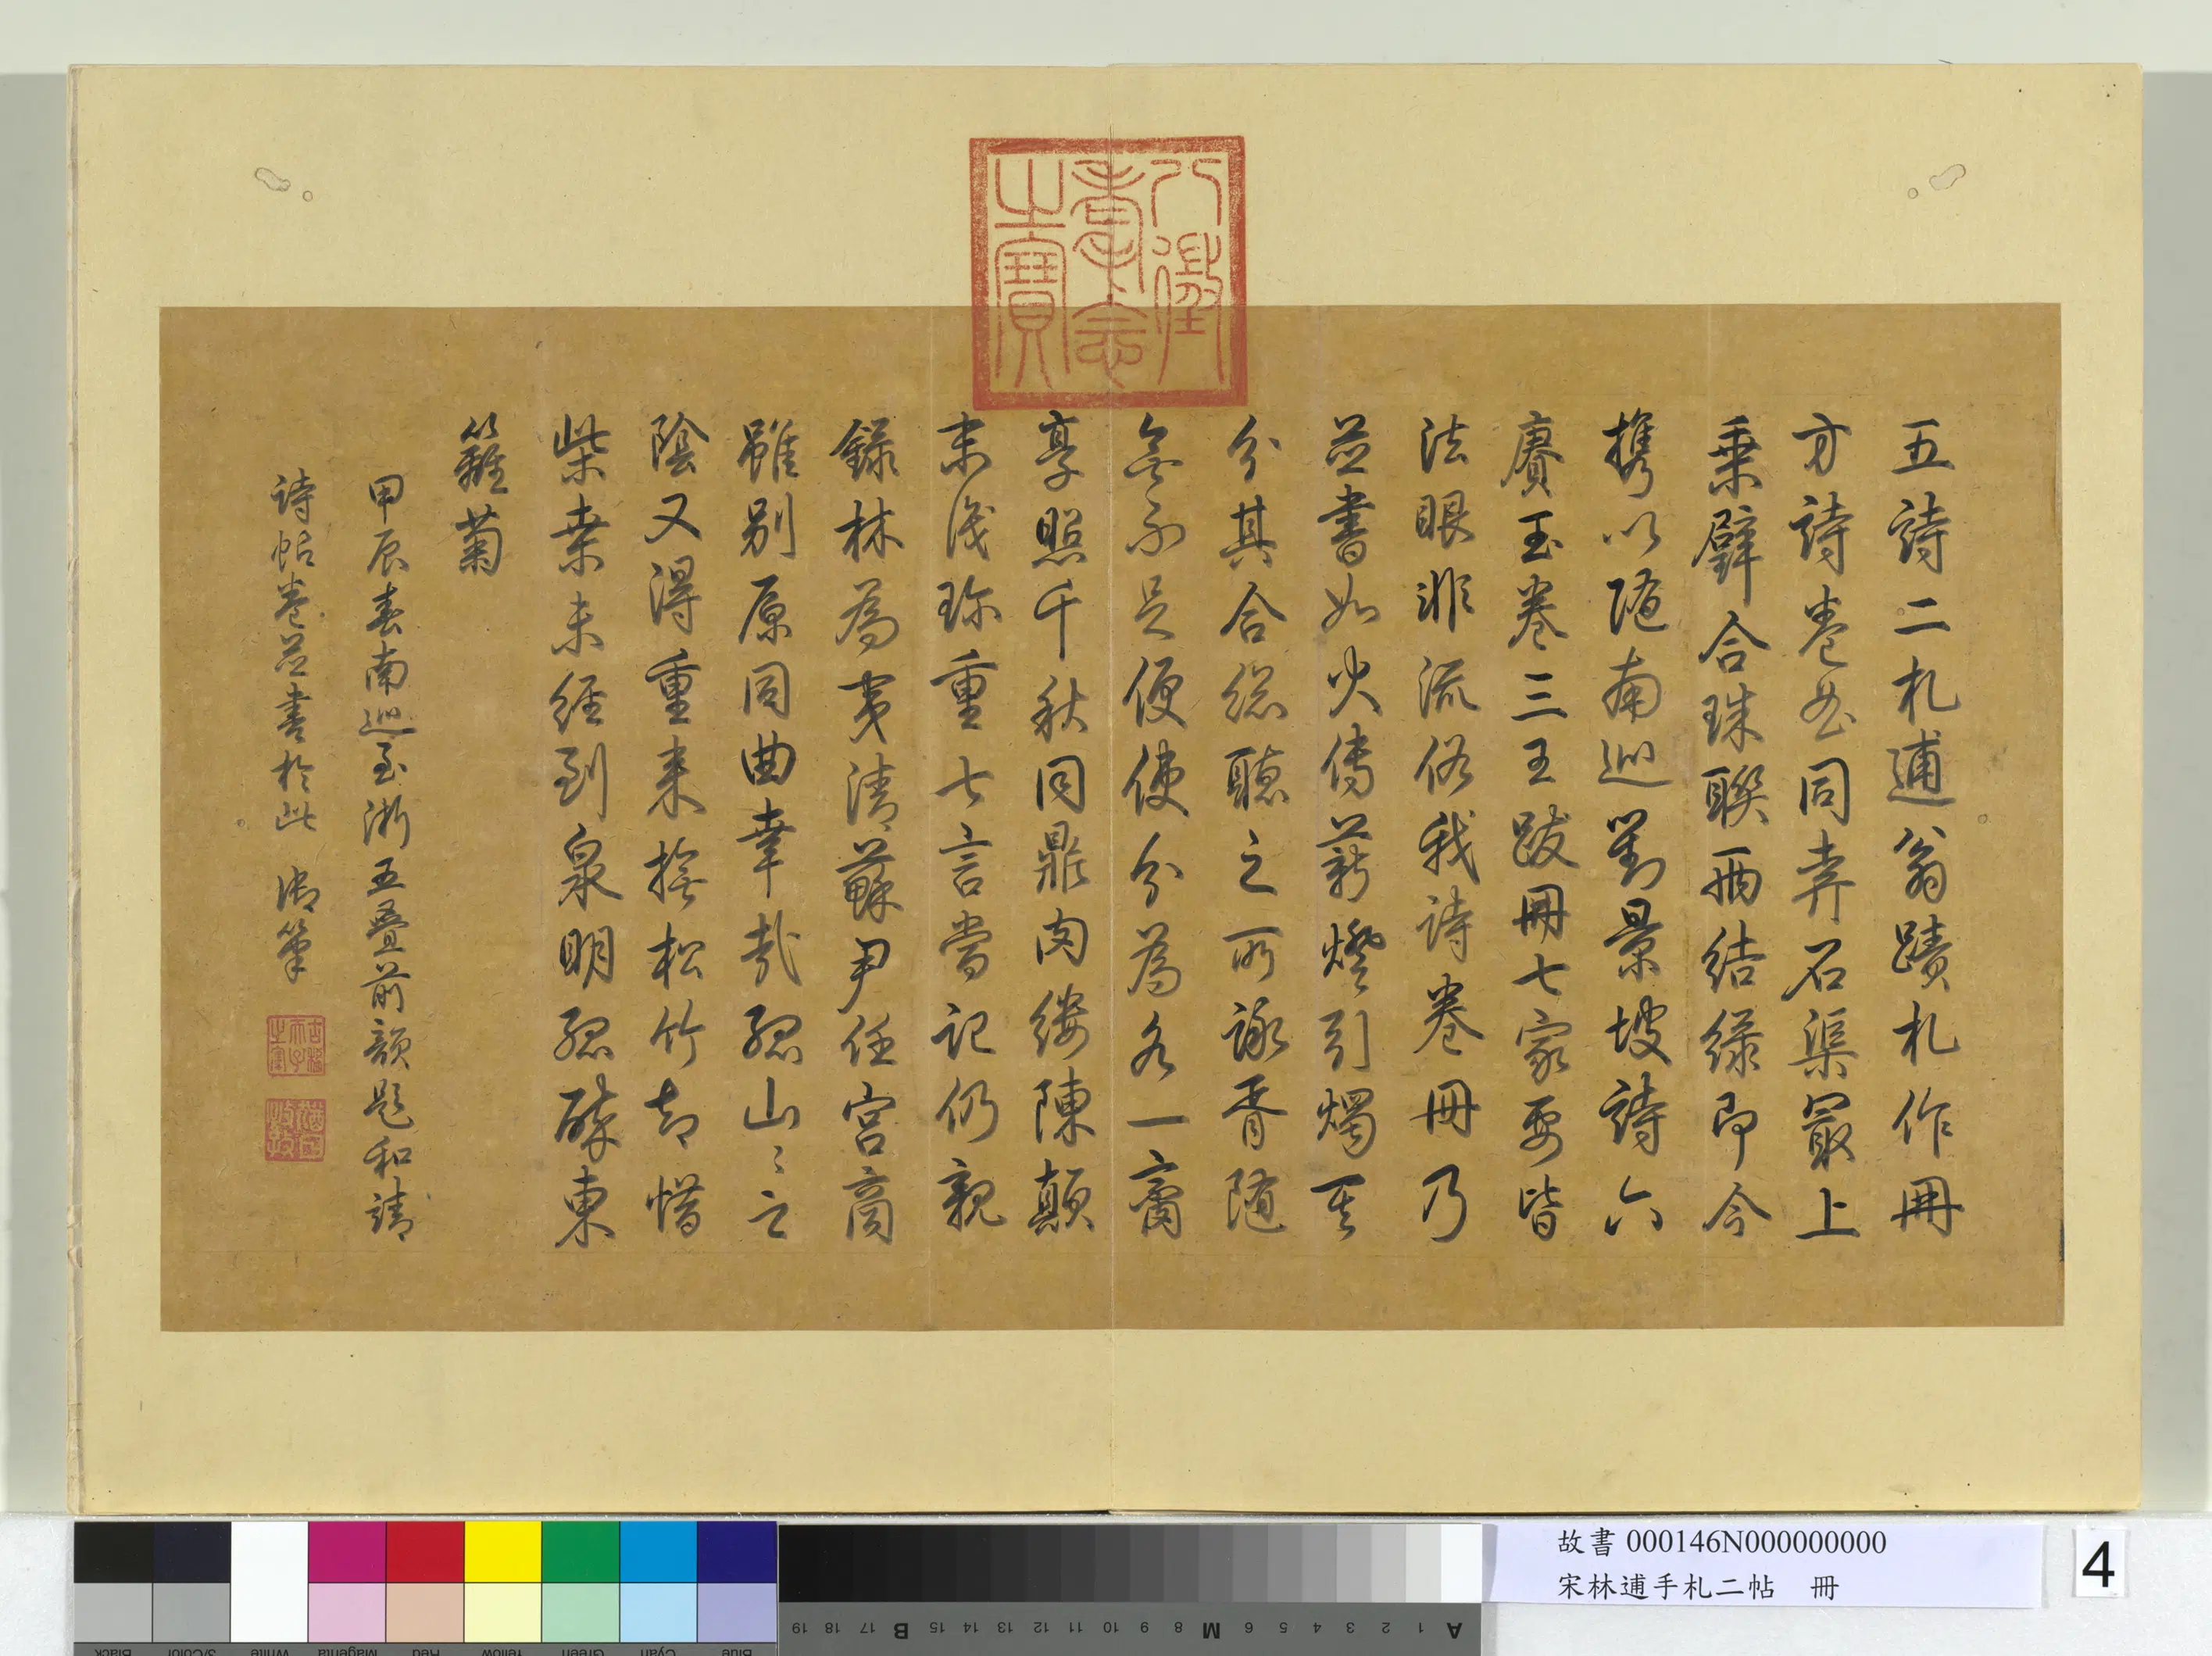 八徵耄念之寶
五詩二札逋翁蹟札作冊
方詩卷姿同弆石渠最上
乘璧合珠聯兩結緣即今
攜以隨南巡對景坡詩六
賡至卷三王跋冊七家要皆
法眼非流俗我詩卷冊乃
並書如火傳薪燈引燭其
分其合總聽之所詠胥隨
無不足便使分為各一齋
享照千秋同鼎肉縷陳顛
末識珍重七言嘗記仍親
錄林為夷清蘇尹任宮商
雖別原同曲幸哉孤山山之
陰又得重來撫松竹却惜
柴桑未經到泉明孤醉東
籬菊
甲辰春南巡至浙五疊前韻題和靖
詩帖卷並書於此 御筆
古稀天子之寶
猶日孜孜
故書 000146N000000000
宋林逋手札二帖 冊
4
Black
3/Color
White
Magenta
Red
Yellow
Green
Cyan
Blue
19 18 17 B 15 14 13 12 11 10 9 8 M 6 5 4 3 2 1 A